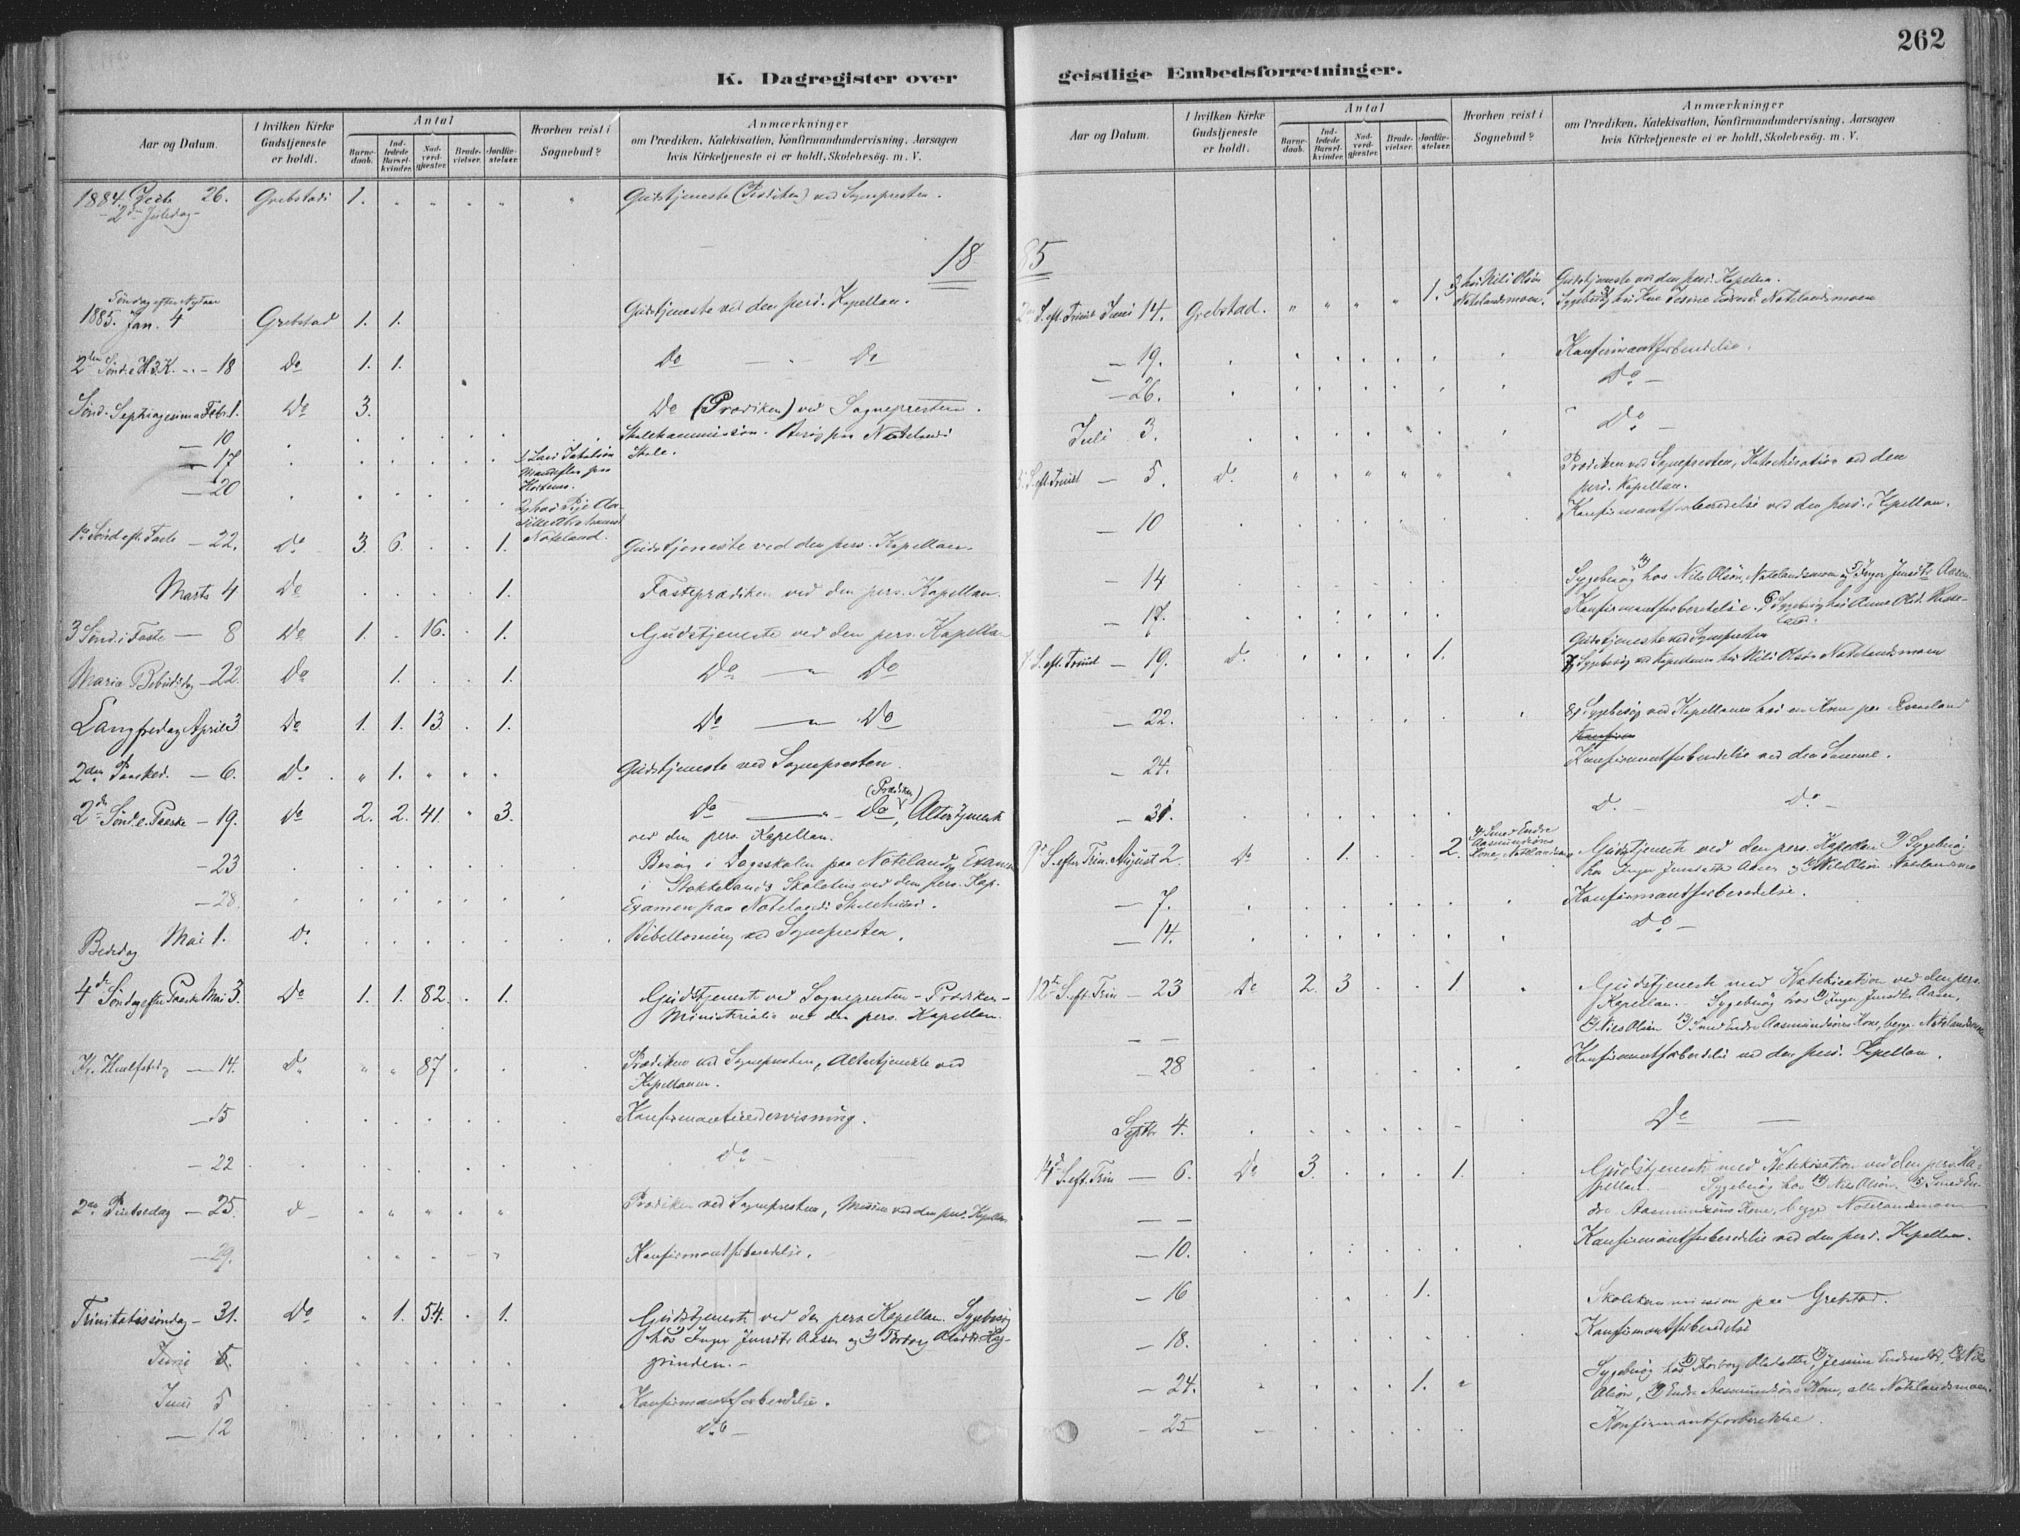 262
K. Dagregister over geistlige Embedsforretninger.
Aar og Datum.
I hvilken Kirke Gudstjeneste er holdt.
Antal
Barne-daab.
Ind-ledede Barsel-kvinder.
Nad-verd-gjester.
Brude-vielser.
Jordfæ-stelser.
Hvorhen reist i Sognebud?
Anmærkninger
om Prædiken, Katekisation, Konfirmandundervisning, Aarsagen
hvis Kirketjeneste ei er holdt, Skolebesög. m. V.
1884. 26. Grebstad 1. Gudstjeneste (Prædiken) ved Sognepresten.
2den Juledag
18
Søndag efter Nytaar
1885. Jan. 4 Grebstad 1. 1. Gudstjeneste ved den pers. Kapellan.
2den Sønd. e. H.3.K. - 18 Do 1. 1. Do — " Do
Sønd. Septuagesima Febr. 1. Do 3. Do (Prædiken) ved Sognepresten.
— 10 Skolekommission. Besøg paa Notelands
— 17 Skole.
— 20
1ste Sønd. eft. Faste — 22. Do 3. 6. 1. Noteland. Gudstjeneste ved den pers. Kapellan.
Marts 4 Do 1. Fasteprædiken ved den pers. Kapellan.
3 Sønd. i Faste — 8 Do 1. 16. 1. Gudstjeneste ved den pers. Kapellan
Maria Bebudelsdag — 22. Do 1. 1. Do — " Do
Langfredag April 3 Do 1. 1. 13. 1. Do — " Do
2den Paasked. — 6. Do " 1. Gudstjeneste ved Sognepresten.
2den Sønd. e. Paaske — 19. Do 2. 2. 41. 3. Do — " Do (Prædiken), Altertjeneste
ved den pers. Kapellan.
— 23 Besøg i Dagsskolen paa Noteland, Examen
i Stokkelands Skolehus ved den pers. Kap.
— 28. Examen paa Notelands Skolehus.
Bededag Mai 1. Do Bibellæsning ved Sognepresten.
4de Søndag efter Paaske Mai 3. Do 1. 1. 82. 1. Gudstjeneste ved Sognepresten - Prædiken -
Ministerialia ved den pers. Kapellan.
Kr. Himmelfartsdag — 14. Do " " 87 Prædiken ved Sognepresten, Altertjeneste ved
Kapellanen.
— 15 Konfirmantundervisning.
— 22 Do —
2den Pintsedag — 25. Do Prædiken ved Sognepresten, Messen ved den pers. Kapellan
— 29. Konfirmantforberedelse.
Trinitatissøndag — 31. Do " 1. 54. 1. Gudstjeneste ved den pers. Kapellan. Sygebesøg
hos Inger Jensdtr. Aasen og 3) Torborg Olsdtr. Høg-
grinden. —
Juni 5.
Juni 5 Konfirmantforberedelse.
— 12 Do —
Aar og Datum.
I hvilken Kirke Gudstjeneste er holdt.
Antal
Barne-daab.
Ind-ledede Barsel-kvinder.
Nad-verd-gjester.
Brude-vielser.
Jordfæ-stelser.
Hvorhen reist i Sognebud?
Anmærkninger
om Prædiken, Katekisation, Konfirmandundervisning, Aarsagen
hvis Kirketjeneste ei er holdt, Skolebesög. m. V.
85
2den S. eft. Trinit. Juni 14. Grebstad. 1. 3 hos Nils Olsøn Notelandsmoen. Gudstjeneste ved den pers. Kapellan.
Sygebesøg hos Notelandsmoen
— 19. Konfirmantforberedelse.
— 26. Do —
Juli 3. Do
S. eft. Trinit. — 5. Do Prædiken ved Sognepresten, Katechisation ved den
pers. Kapellan.
— 10 Konfirmantforberedelse ved den pers. Kapellan.
— 14 Sygebesøg hos 4) Nils Olsøn, Notelandsmoen og 5) Inger Jensdtr. Aasen.
— 17. Konfirmantforberedelse. 6) Sygebesøg hos Anne Olsd.
Gudstjeneste ved Sognepresten
7 S. eft. Trinit. — 19. Do 1. 7) Sygebesøg ved Kapellanen hos Nils Olsøn Notelandsmoen
— 22. 8) Sygebesøg ved Kapellanen hos en Kone paa
— 24. Konfirmantforberedelse ved den Samme.
— 31. Do — Do —
9de S. efter Trin. August 2. Do 1. 2. Smed Endre Aasmundsøns Kone, Notelandsmoen Gudstjeneste ved den pers. Kapellan 9) Sygebesøg
hos Inger Jensdatter Aasen og 10) Nils Olsøn Notelandsmoen
— 7. Konfirmantforberedelse.
— 14. Do —
12te S. eft. Trin — 23 Do 2. 3 1 Gudstjeneste med Katekisation ved den pers.
Kapellan. Sygebesøg hos 11) Inger Jensdtr. Aasen,
12) Nils Olsøn 13) Smed Endre Aasmundsøns Kone, begge Notelandsmoen
— 28 Konfirmantforberedelse ved den pers. Kapellan.
Septbr. 4. Do —
14de S. eft. Trin — 6. Do 3. 1. Gudstjeneste med Katekisation ved den pers. Ka-
pellan. — Sygebesøg hos 14) Nils Olsøn. 15) Smed En-
dre Aasmundsøns Kone, begge Notelandsmoen
— 10. Konfirmantforberedelse ved den pers. Kapellan.
— 16 1. Skolekommission paa Grebstad.
— 18. Konfirmantforberedelse
— 24. 1. Sygebesøg hos 16) Torborg Olsdatter, 17) Jensine Endresdtr, 18) Nils
Olsøn, 19) Endre Aasmundsøns Kone, alle Notelandsmoen.
— 25 Konfirmantforberedelse.